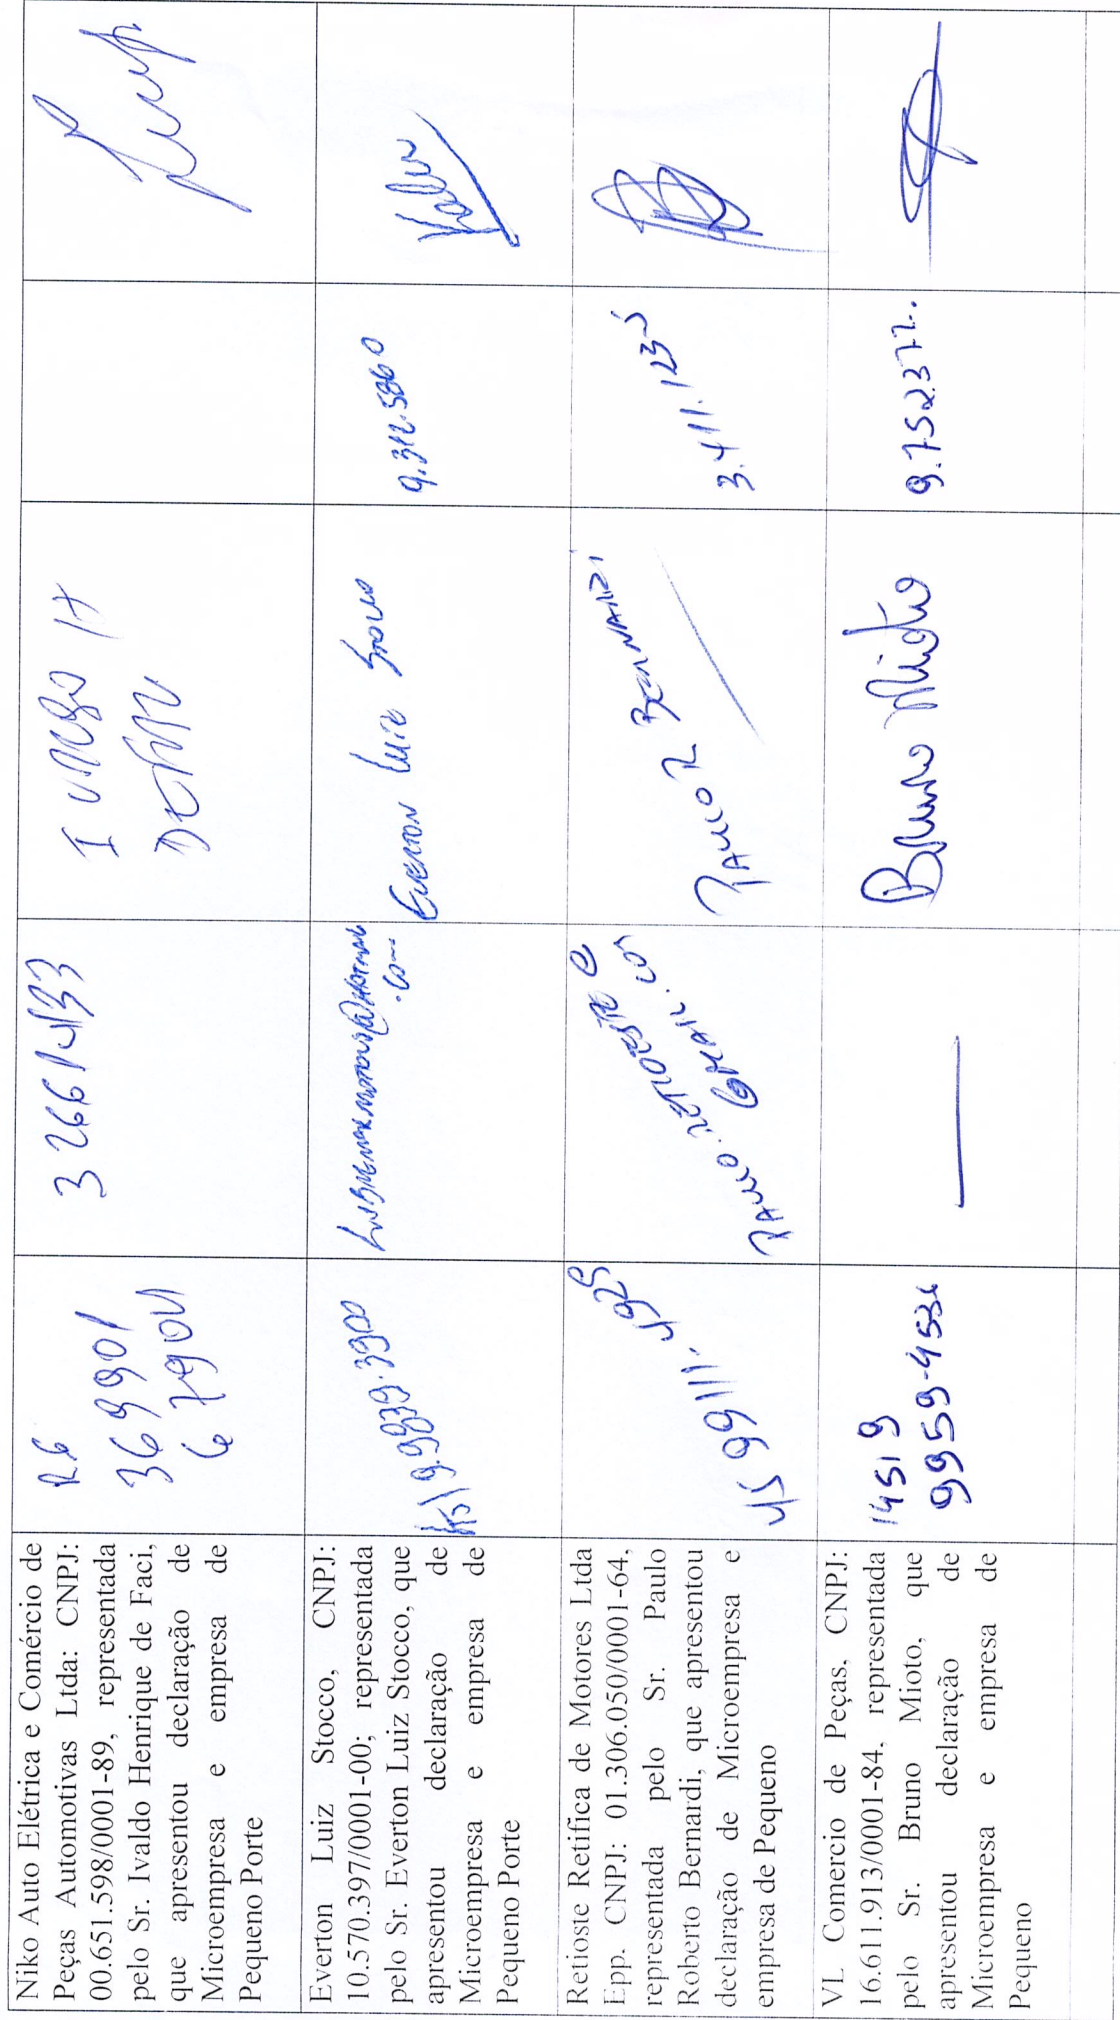 Niko Auto Elétrica e Comércio de
Peças Automotivas Ltda: CNPJ:
00.651.598/0001-89, representada
pelo Sr. Ivaldo Henrique de Faci,
que apresentou declaração de
Microempresa e empresa de
Pequeno Porte
369901
3266
Everton Luiz Stocco, CNPJ:
10.570.397/0001-00; representada
pelo Sr. Everton Luiz Stocco, que
apresentou declaração de
Microempresa e empresa de
Pequeno Porte
9.9839.3900
Everton Luiz Stocco
9.312.586 0
Retioste Retifica de Motores Ltda
Epp. CNPJ: 01.306.050/0001-64,
representada pelo Sr. Paulo
Roberto Bernardi, que apresentou
declaração de Microempresa e
empresa de Pequeno
45 99111.4925
Paulo.retioeste@
gmail.com
Paulo R Bernardi
3.411.123-5
VL Comercio de Peças, CNPJ:
16.611.913/0001-84, representada
pelo Sr. Bruno Mioto, que
apresentou declaração de
Microempresa e empresa de
Pequeno
1451 9
9959-4536
Bruno Mioto
9.752377-.